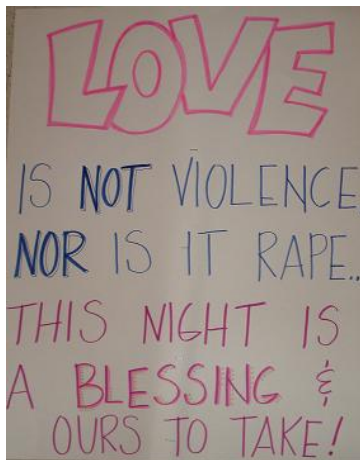 LOVE
IS NOT VIOLENCE
NOR IS IT RAPE..
THIS NIGHT IS
A BLESSING &
OURS TO TAKE!